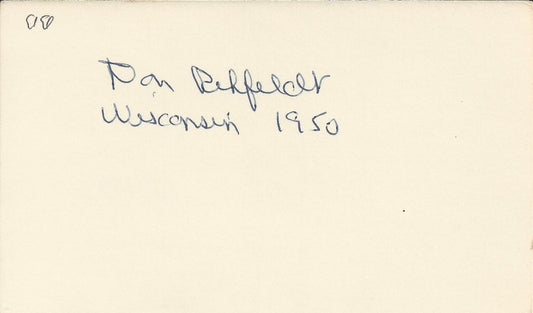 Don Rehfeldt
Wisconsin 1950